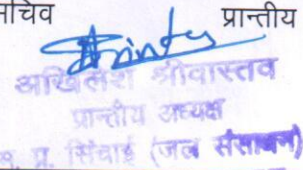 सचिव प्रान्तीय
अखिलेश श्रीवास्तव
प्रान्तीय अध्यक्ष
प्र. सिंचाई (जल संसाधन)